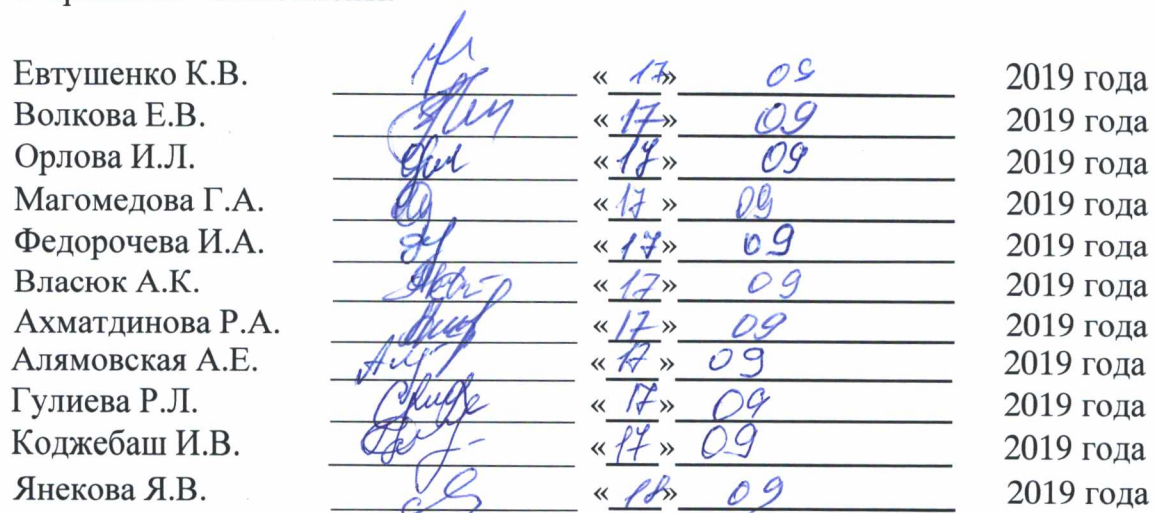 Евтушенко К.В. « 17» 09 2019 года
Волкова Е.В. «17» 09 2019 года
Орлова И.Л. «17» 09 2019 года
Магомедова Г.А. «17» 09 2019 года
Федорочева И.А. «17» 09 2019 года
Власюк А.К. «17» 09 2019 года
Ахматдинова Р.А. «17» 09 2019 года
Алямовская А.Е. «17» 09 2019 года
Гулиева Р.Л. «17» 09 2019 года
Коджебаш И.В. «17» 09 2019 года
Янекова Я.В. «18» 09 2019 года